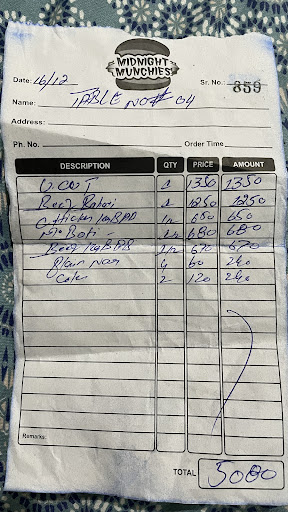 MIDNIGHT
MUNCHIES
Date: 16/12
Sr. No. 859
Name: TABLE NO# 04
Address:
Ph. No. Order Time
DESCRIPTION QTY PRICE AMOUNT
1350 1350
Beef 1250 1250
Chicken 650 650
Boti 680 680
Beef 670 670
Plain Nan 4 60 240
Coke 2 120 240
Remarks:
TOTAL 5080